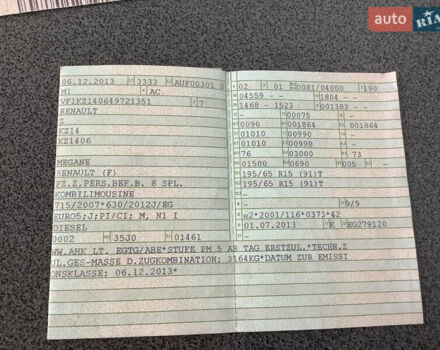 auto RIA
06.12.2013 3333 AUF00301 0
MI AC
VF1KZ140649721351 7
RENAULT
Z
KZ14
KZ1406
MEGANE
RENAULT (F)
FZ.Z.PERS.BEF.B. 8 SPL.
KOMBILIMOUSINE
715/2007*630/2012J/EG
EURO5;J;PI/CI; M, N1 I
DIESEL
0002 35J0 01461
02 01 0081/04000 190
04559 - - 1804 - -
1468 - 1523 001383 - -
- 00075 -
0090 001864 001864
01010 00990 - -
01010 00990 - -
76 03000 73
01500 0690 005 - -
195/65 R15 (91)T
195/65 R15 (91)T
-
- 9/9
e2*2001/116*0373*42
01.07.2013 K EG279120
-
WW.AHK LT. EGTG/ABE*STUFE PM 5 AB TAG ERSTZUL.*TECHN.Z
UL.GES-MASSE D.ZUGKOMBINATION: 3164KG*DATUM ZUR EMISSI
ONSKLASSE: 06.12.2013*